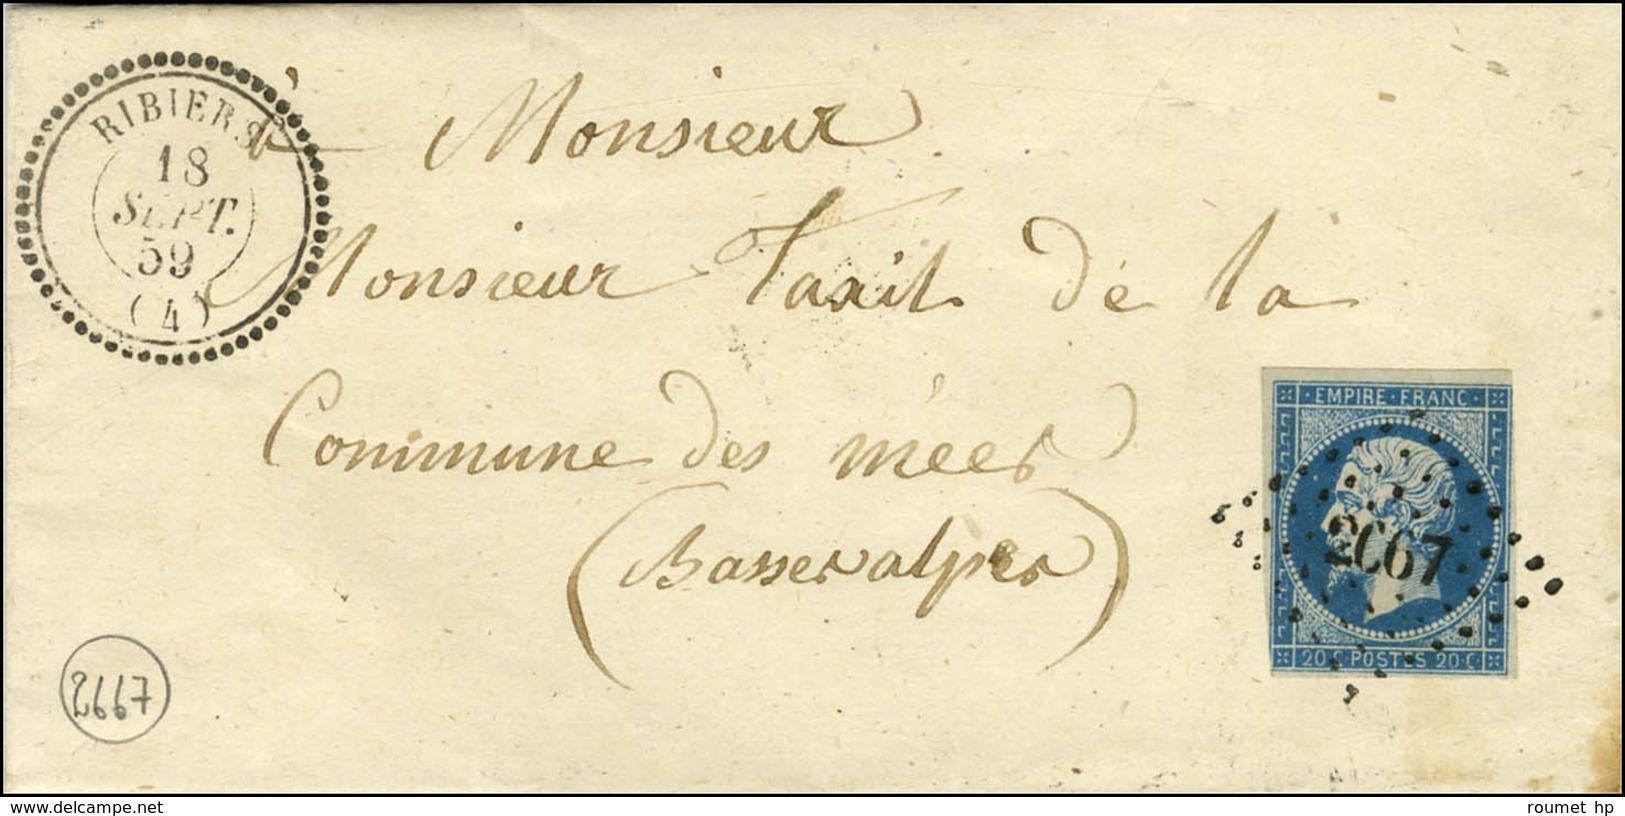 RIBIERS
18
SEPT.
59
(4)
à Monsieur
Monsieur Taxil de la
Commune des mées
(Basses alpes)
EMPIRE · FRANC ·
2667
20 C POSTES 20 C
2667
www.delcampe.net
roumet hp